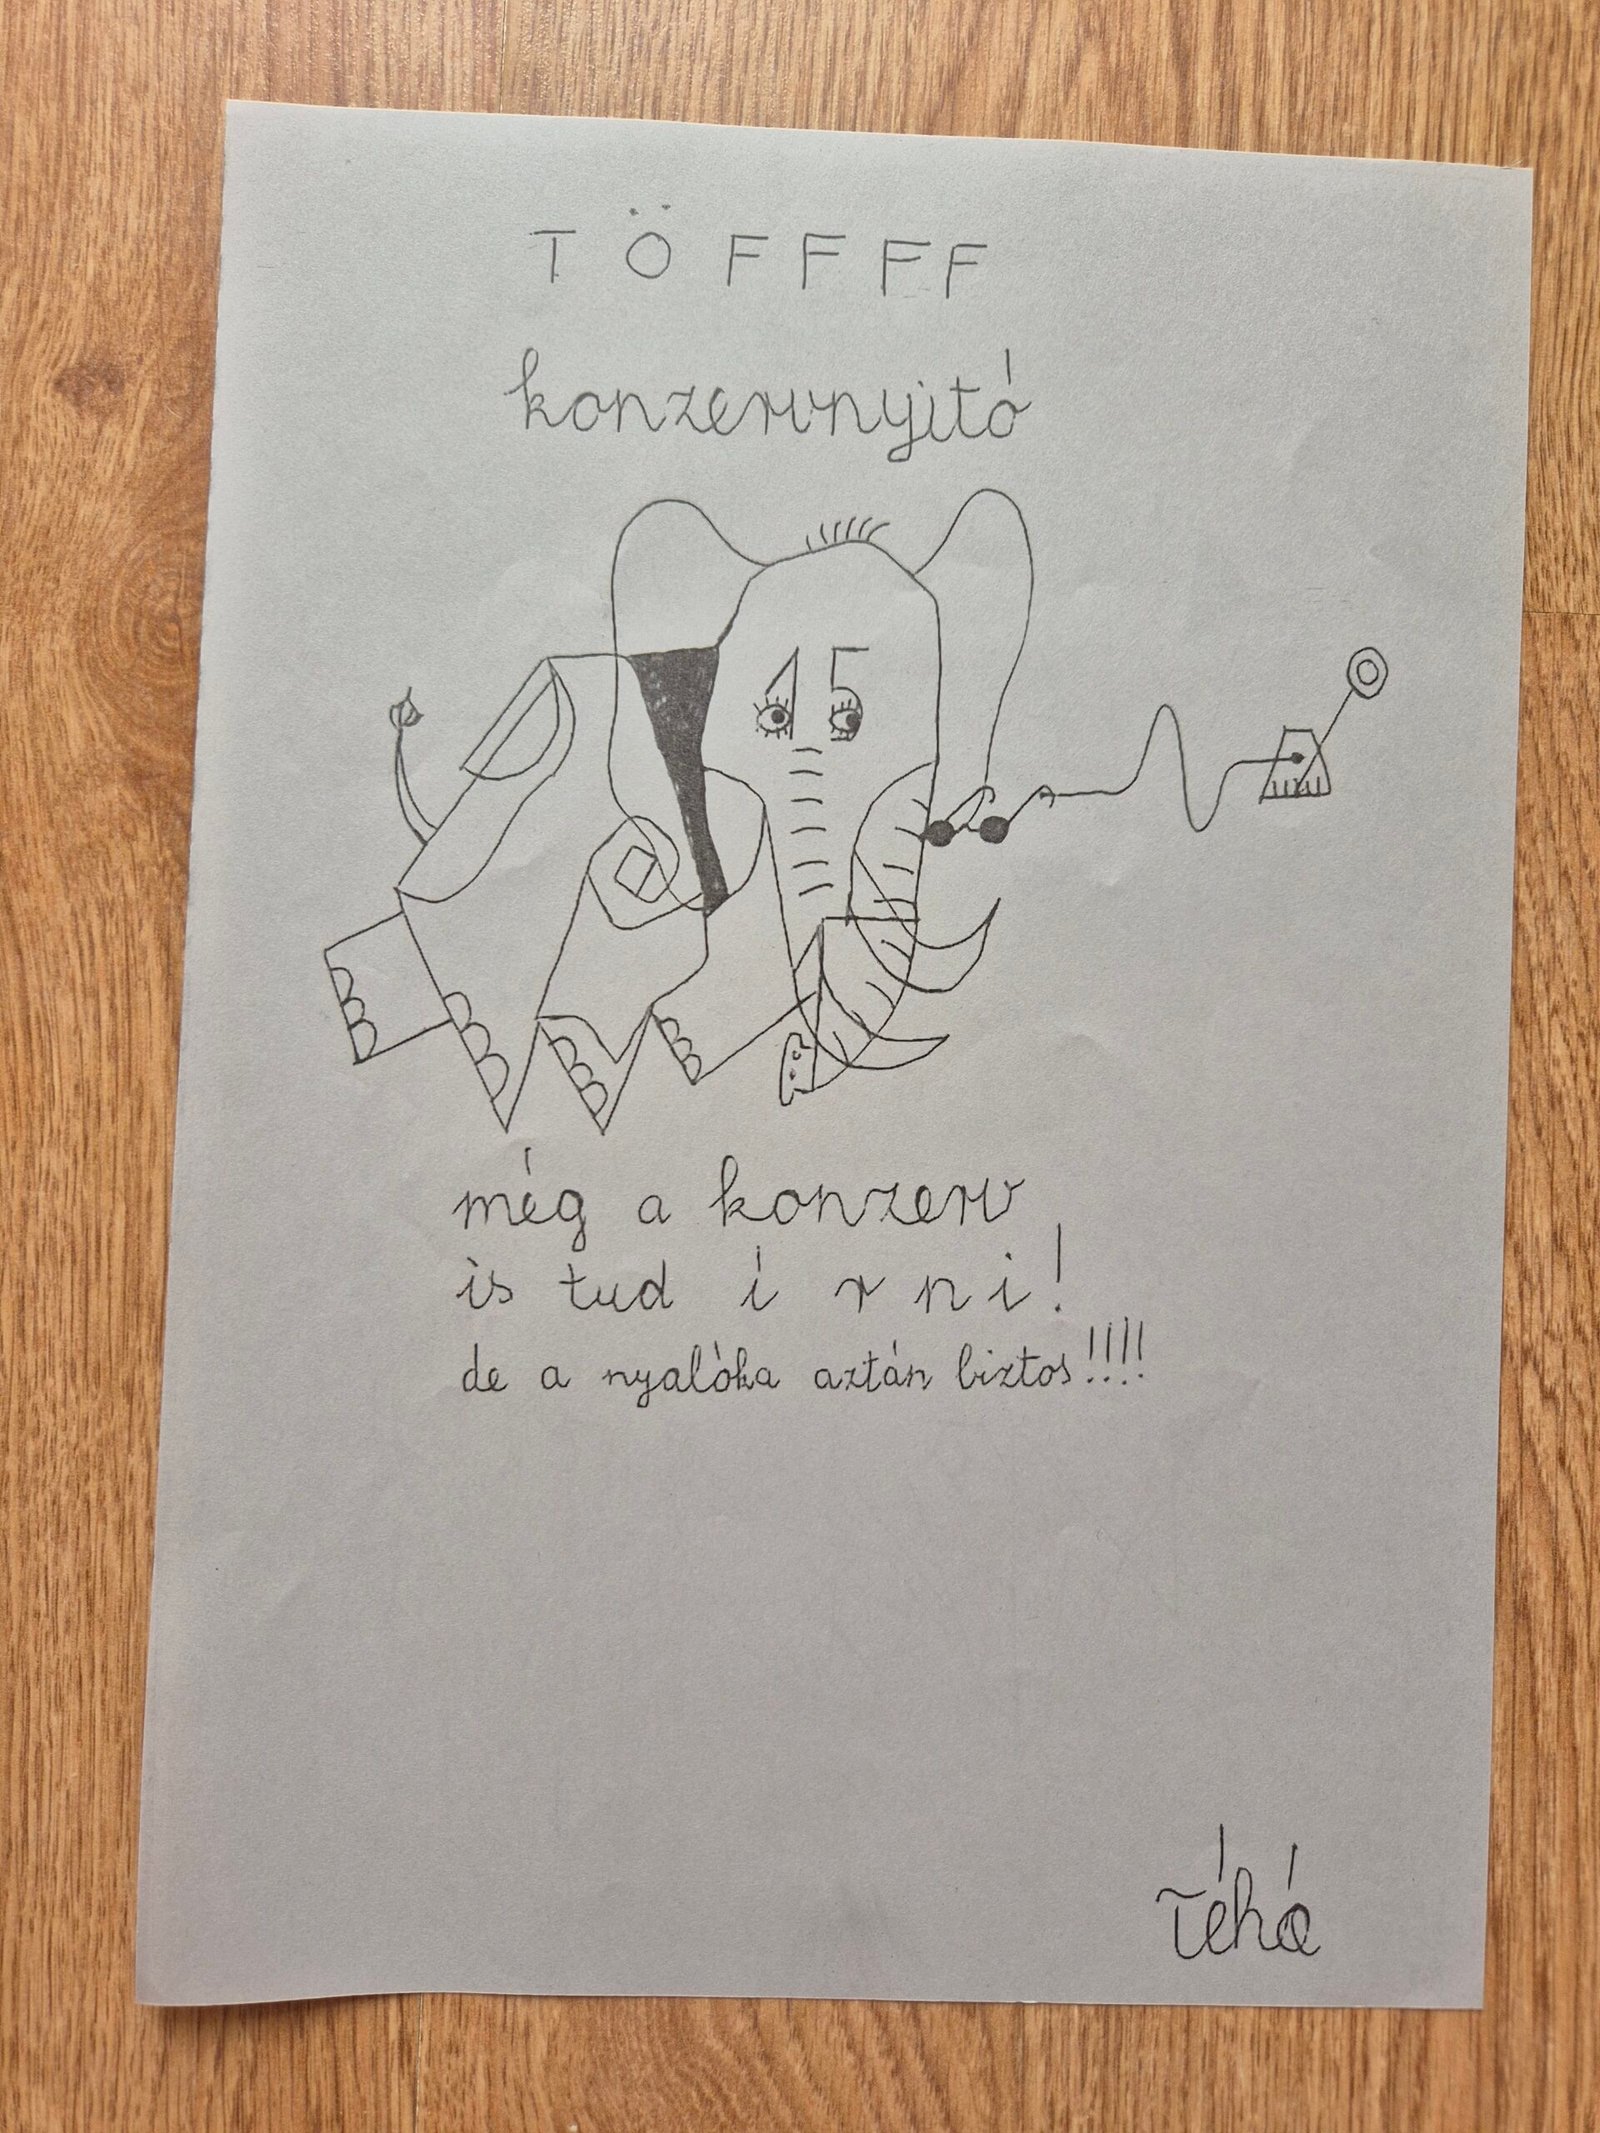 TÖFFFF
konzervnyitó
15
még a konzerv
is tud írni!
de a nyalóka aztán biztos!!!!
Téhá